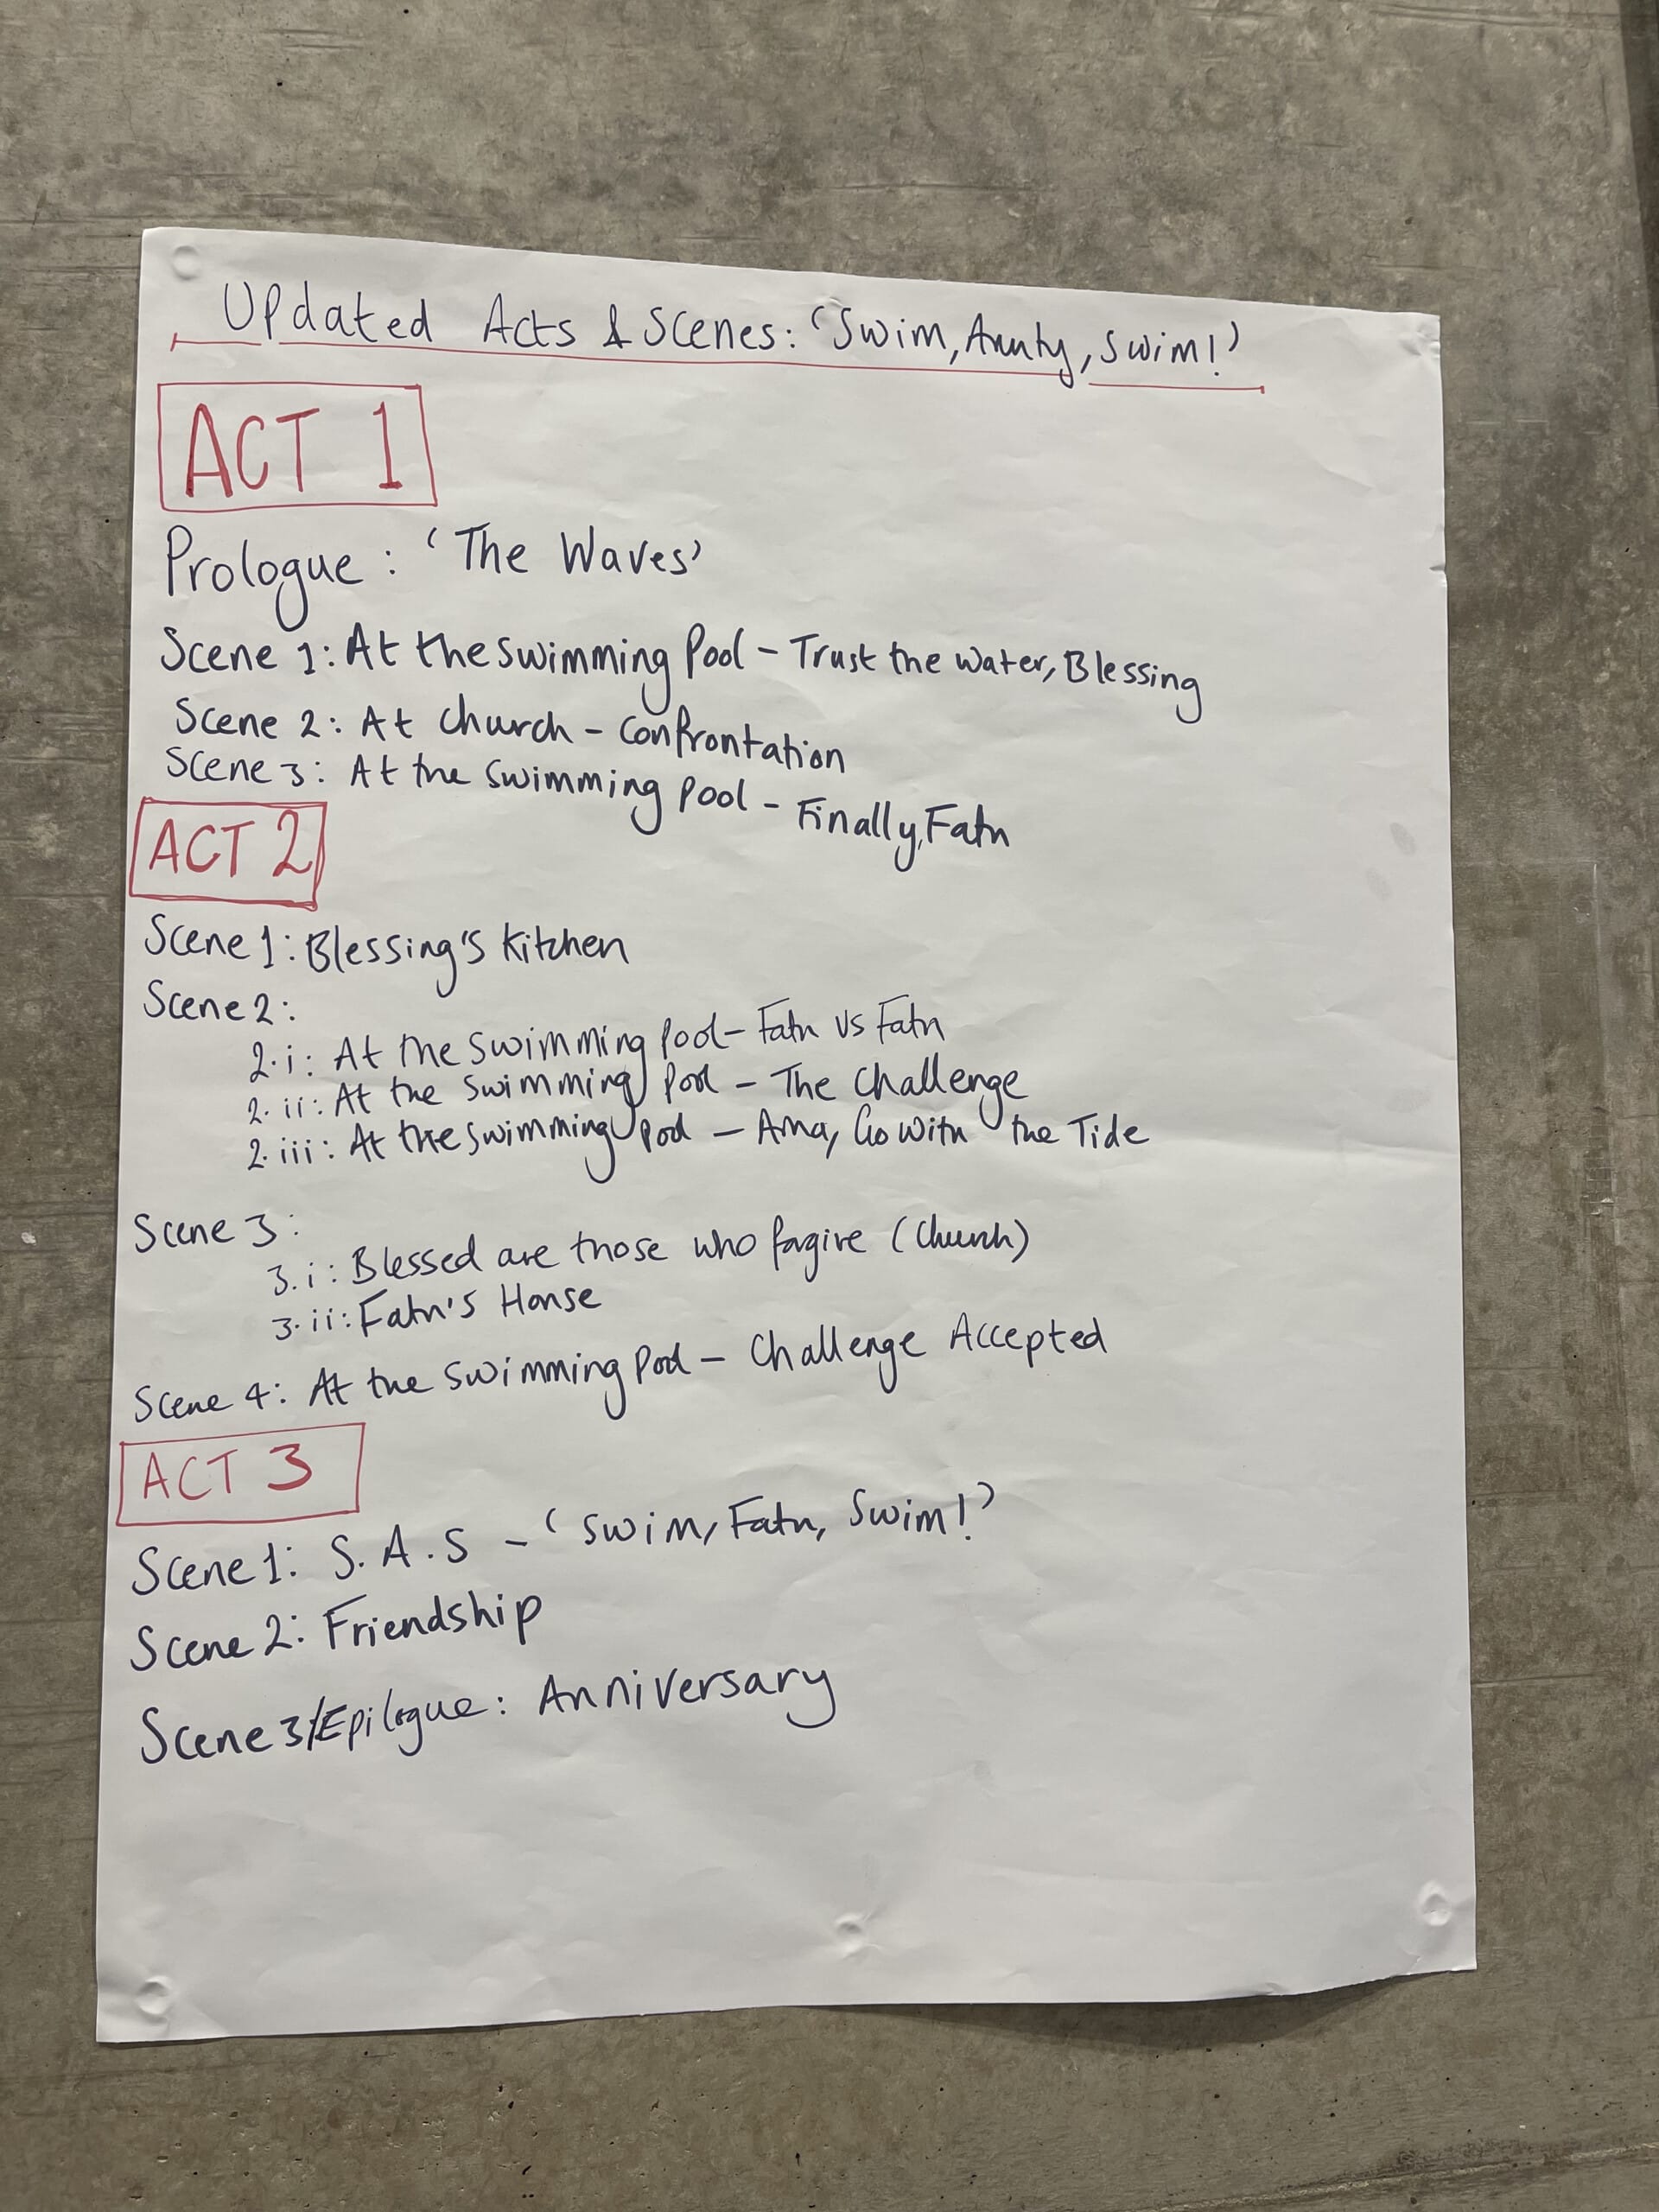 Updated Acts & Scenes: 'Swim, Aunty, Swim!'
ACT 1
Prologue: 'The Waves'
Scene 1: At the Swimming Pool - Trust the Water, Blessing
Scene 2: At Church - Confrontation
Scene 3: At the Swimming Pool - Finally, Fatu
ACT 2
Scene 1: Blessing's Kitchen
Scene 2:
2.i: At the Swimming Pool - Fatu vs Fatu
2.ii: At the Swimming Pool - The Challenge
2.iii: At the Swimming Pool - Ama, Go With the Tide
Scene 3:
3.i: Blessed are those who forgive (Church)
3.ii: Fatu's House
Scene 4: At the Swimming Pool - Challenge Accepted
ACT 3
Scene 1: S.A.S - 'Swim, Fatu, Swim!'
Scene 2: Friendship
Scene 3/Epilogue: Anniversary